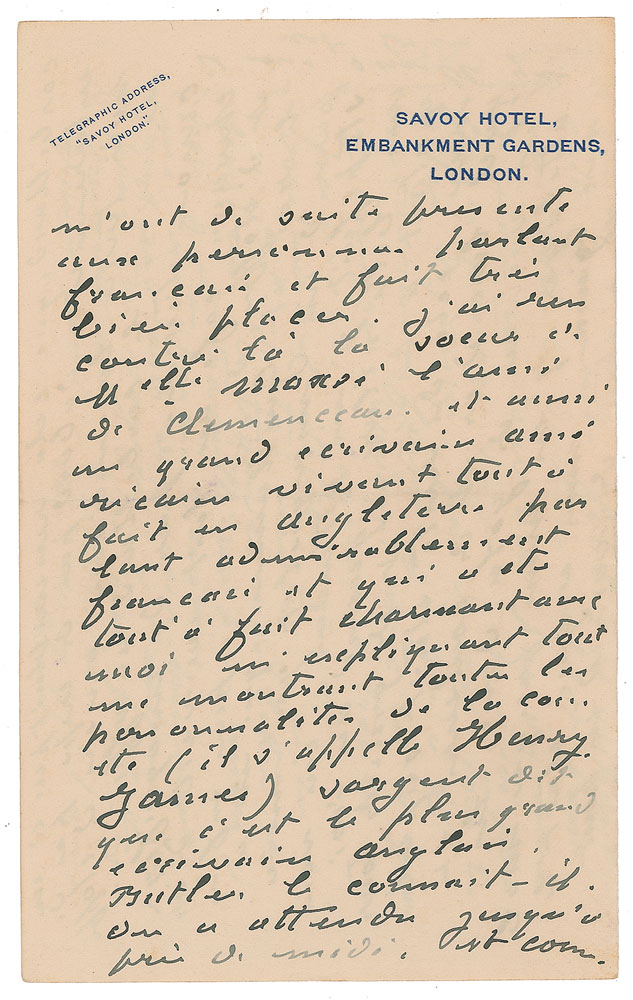 TELEGRAPHIC ADDRESS,
"SAVOY HOTEL,
LONDON."
SAVOY HOTEL,
EMBANKMENT GARDENS,
LONDON.
m'ont de suite presente
aux personnes parlant
francais et fait très
bien placer. j'ai ren
contré là la soeur de
Melle Maxse l'ami
de Clemenceau. et aussi
un grand ecrivain amé
ricain vivant tout à
fait en angleterre par
lant admirablement
francais et qui a été
tout à fait charmant avec
moi m'expliquant tout
me montrant toutes les
personnalités de la soci
eté (il s'appelle Henry
James) sargent dit
que c'est le plus grand
ecrivain anglais.
Butler le connait-il.
on a attendu jusqu'à
près de midi. et com-